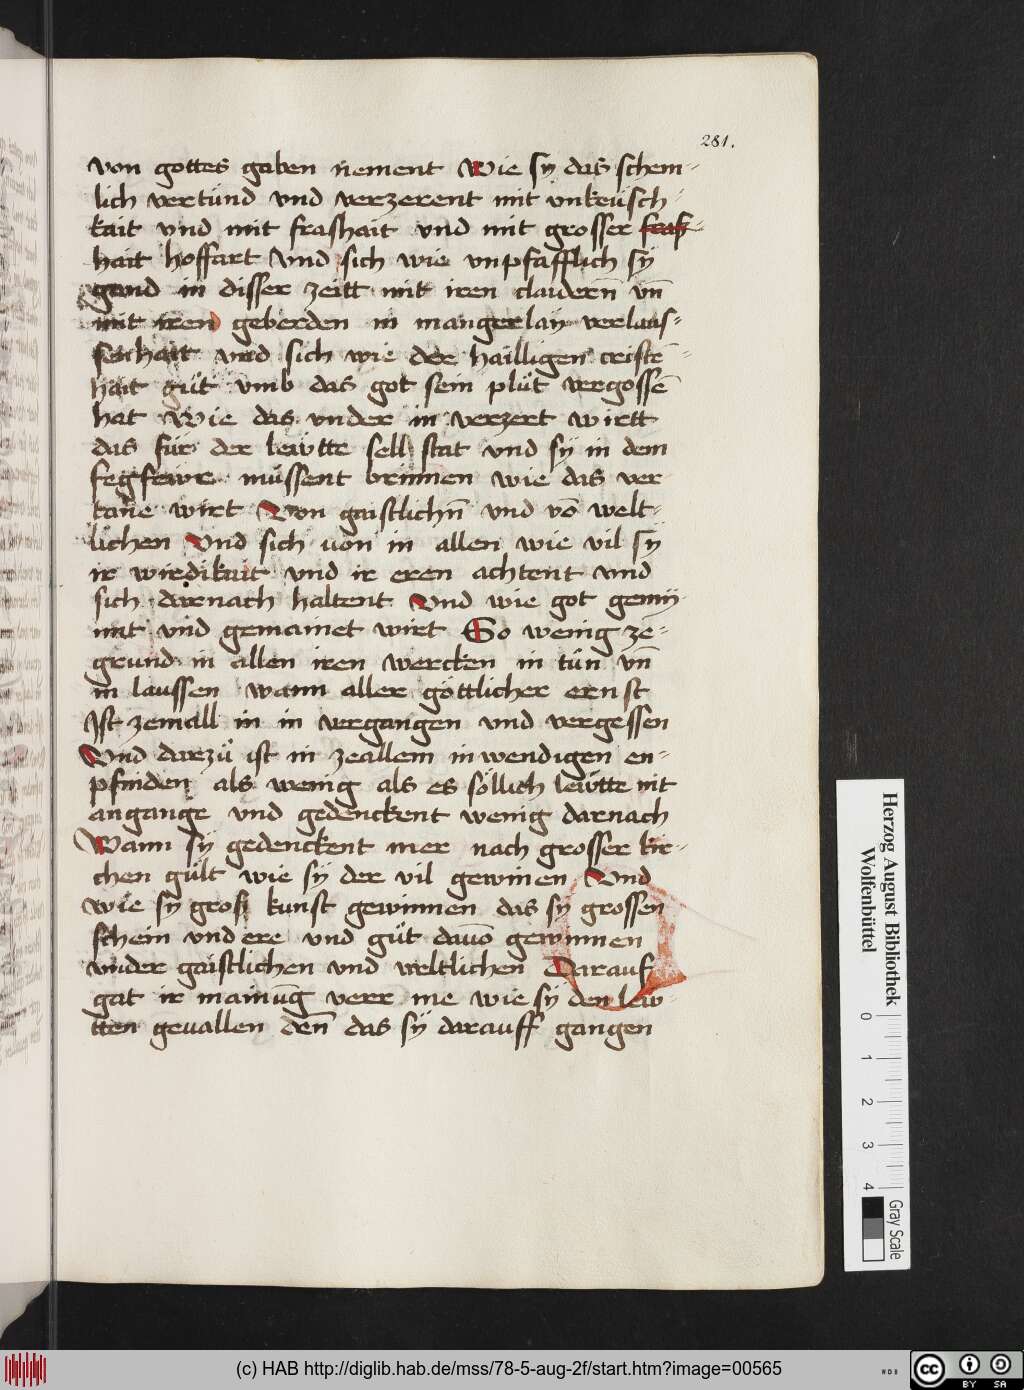 281.
von gottes gaben nement Wie sÿ das schem-
lich vertünd vnd verzerent mit vnkeüsch-
kait vnd mit frashait vnd mit grosser fras-
hait hoffart Vnd sich wie vnpfäfflich sÿ
gand in disser zeitt mit iren claidern̄ vn̄
mit iren geberden in mangerlay verlaus-
senhait vnd sich wie der hailligen cristē-
hait güt vmb das got sein plüt vergossē
hat Wie das vnder in verzert wirtt
das für der lewtte sell stat vnd sÿ in dem
fegfewr müssent brinnen wie das ver
tane wirt Von gaistlichn̄ vnd vō welt-
lichen Vnd sich von in allen wie vil sÿ
ir wirdikait vnd ir eren achtent vnd
sich darnach haltent Vnd wie got gemÿ-
nnt vnd gemainet wirt So wenig zē-
grund in allen iren wercken in tün vn̄
in laussen wann aller göttlicher ernst
Ist zemall in in vergangen vnd vergessen
Vnd darzü ist in zeallem inwendigen en-
pfinden als wenig als es söllich lewtte nit
angange vnd gedenckent wenig darnach
Wann sÿ gedenckent mer nach grosser kir-
chen gült wie sÿ der vil gewinen Vnd
wie sÿ groß kunst gewinnen das sÿ grossen
schein vnd ere vnd güt dauō gewinnen
vnder gaistlichen vnd weltlichen Darauf
gat ir mainūg verr me wie sÿ den lew-
tten geuallen den̄ das sÿ darauff gangen
Herzog August Bibliothek
Wolfenbüttel
0 1 2 3 4
Gray Scale
(c) HAB http://diglib.hab.de/mss/78-5-aug-2f/start.htm?image=00565
cc BY SA